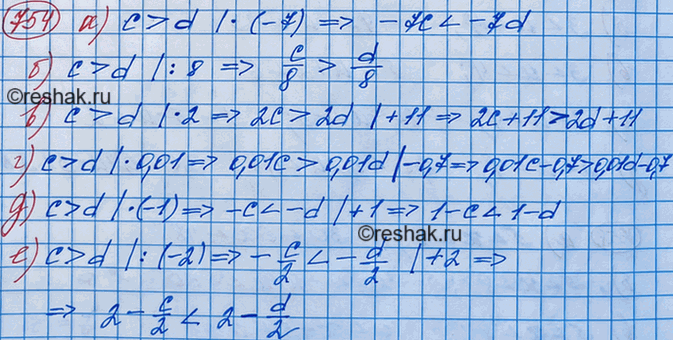 754 а) c > d | · (-7) => -7c < -7d
б) c > d | : 8 => c/8 > d/8
©reshak.ru
в) c > d | · 2 => 2c > 2d | + 11 => 2c + 11 > 2d + 11
г) c > d | · 0,01 => 0,01c > 0,01d | - 0,7 => 0,01c - 0,7 > 0,01d - 0,7
д) c > d | · (-1) => -c < -d | + 1 => 1 - c < 1 - d
©reshak.ru
е) c > d | : (-2) => - c/2 < - d/2 | + 2 =>
=> 2 - c/2 < 2 - d/2